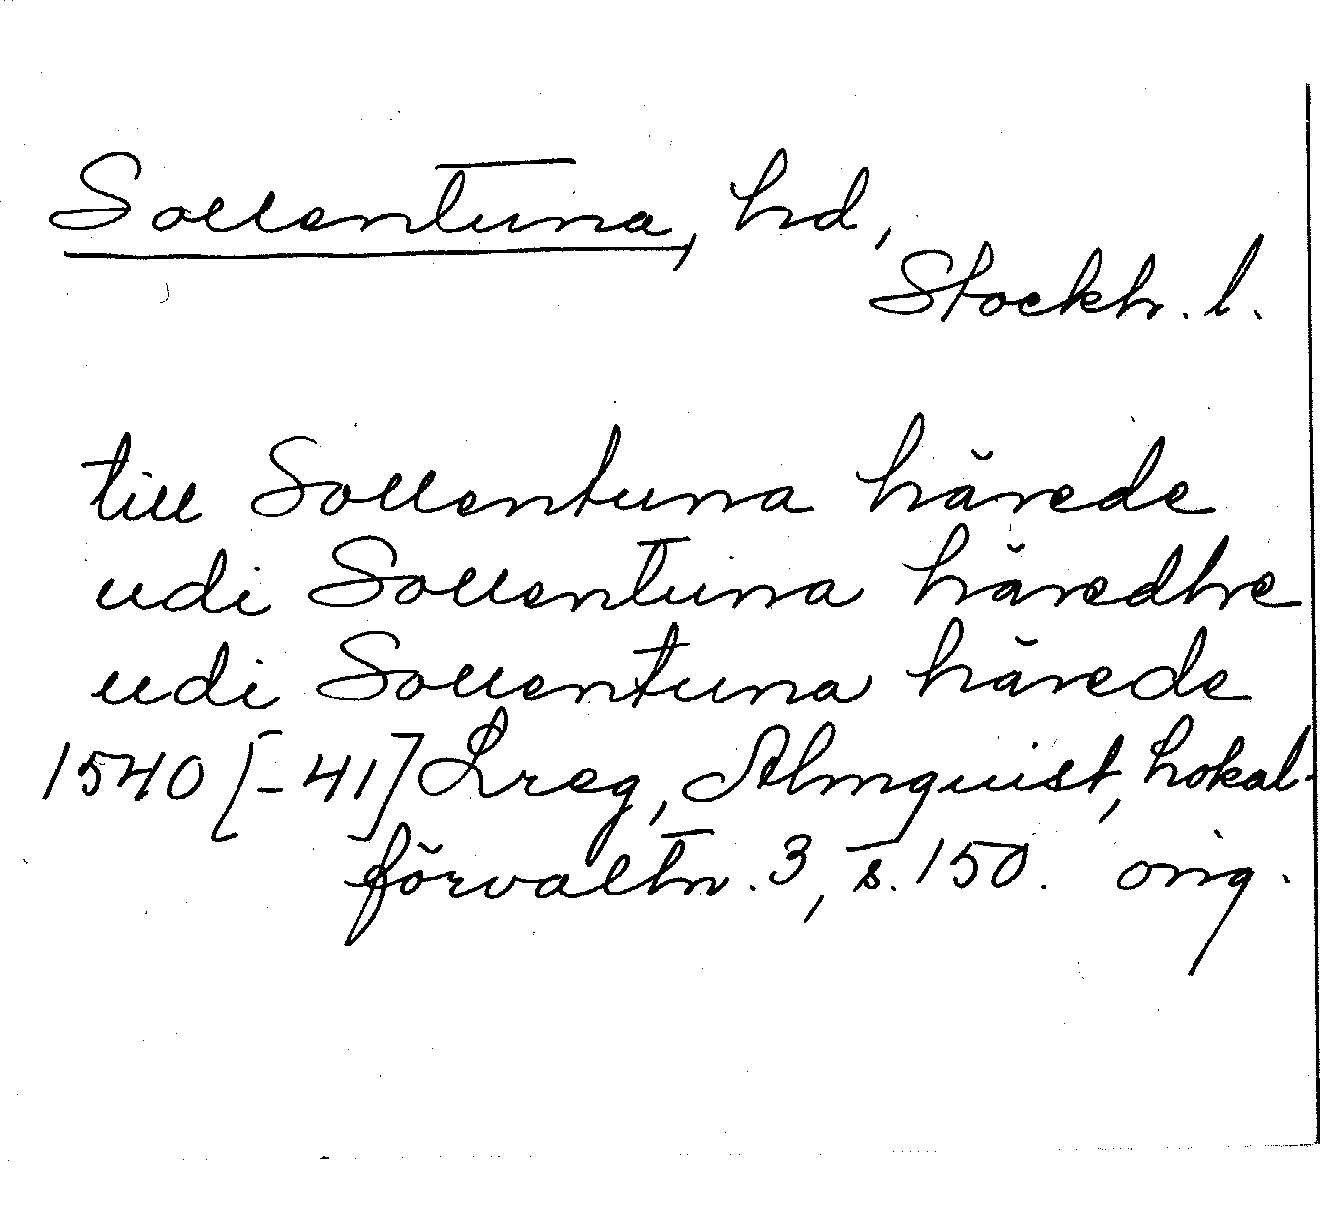 Sollentuna, hd,
Stockh. l.
till Sollentuna härede
udi Sollentuna häredhe
udi Sollentuna härede
1540 [-41] Lreg, Almquist, Lokal-
förvaltn. 3, s. 150. orig.